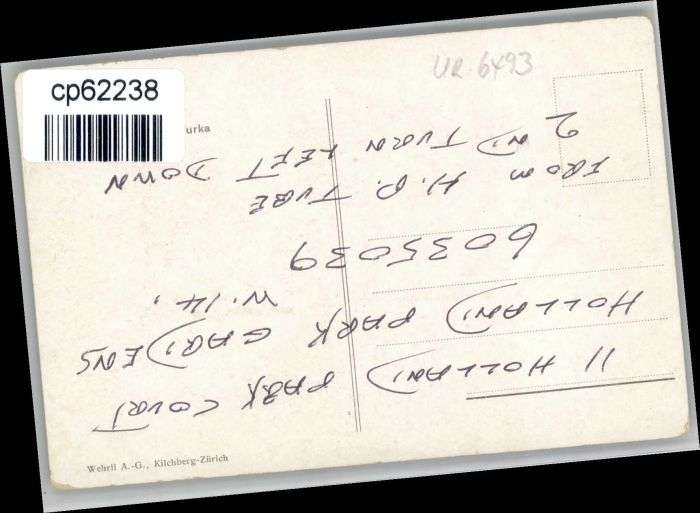 cp62238
UR 6493
urka
11 HOLLAND PARK COURT
HOLLAND PARK GARDENS
W.14.
6035039
FROM H.P. TUBE
2ND TURN LEFT DOWN
Wehrli A.-G., Kilchberg-Zürich